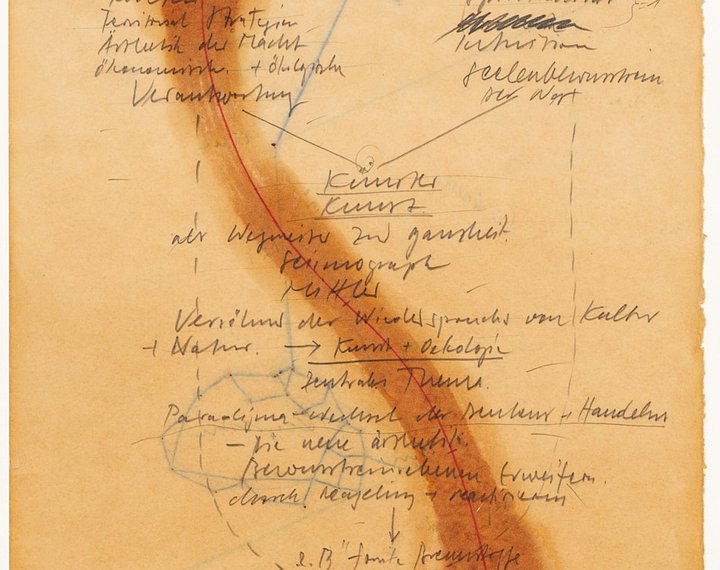 Territorial Strategien
Ästhetik der Macht
ökonomisch. + ökologische
Verantwortung
Intuition
Seelenbewusstsein
der Welt
Künstler
Kunst
als Wegweiser zur ganzheit.
Seismograph
Mittler
Versöhner der Wiedersprüche von Kultur
+ Natur. → Kunst + Oekologie
Zentrales Thema.
Paradigma-Wechsel der Denkens + Handelns
— Die neue ästhetik.
Bewusstseinsebenen Erweitern.
durch + reactivieren
z.B "